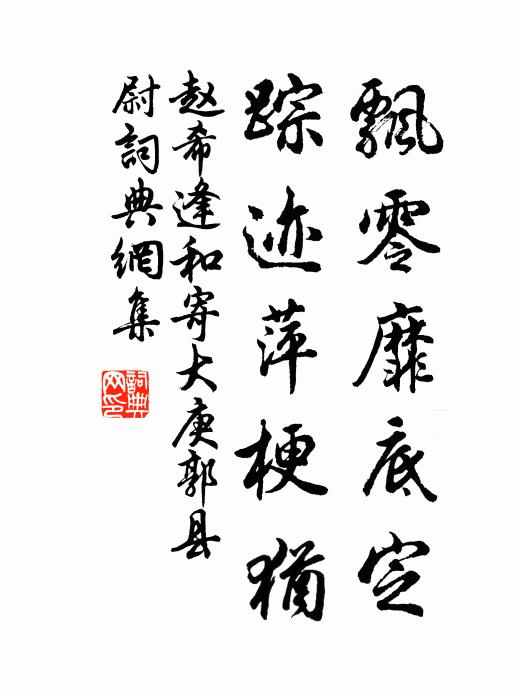 飄零靡底定
踪迹萍梗猶
赵希逢和寄大庾郭县
尉詞典網集
詞典
网印